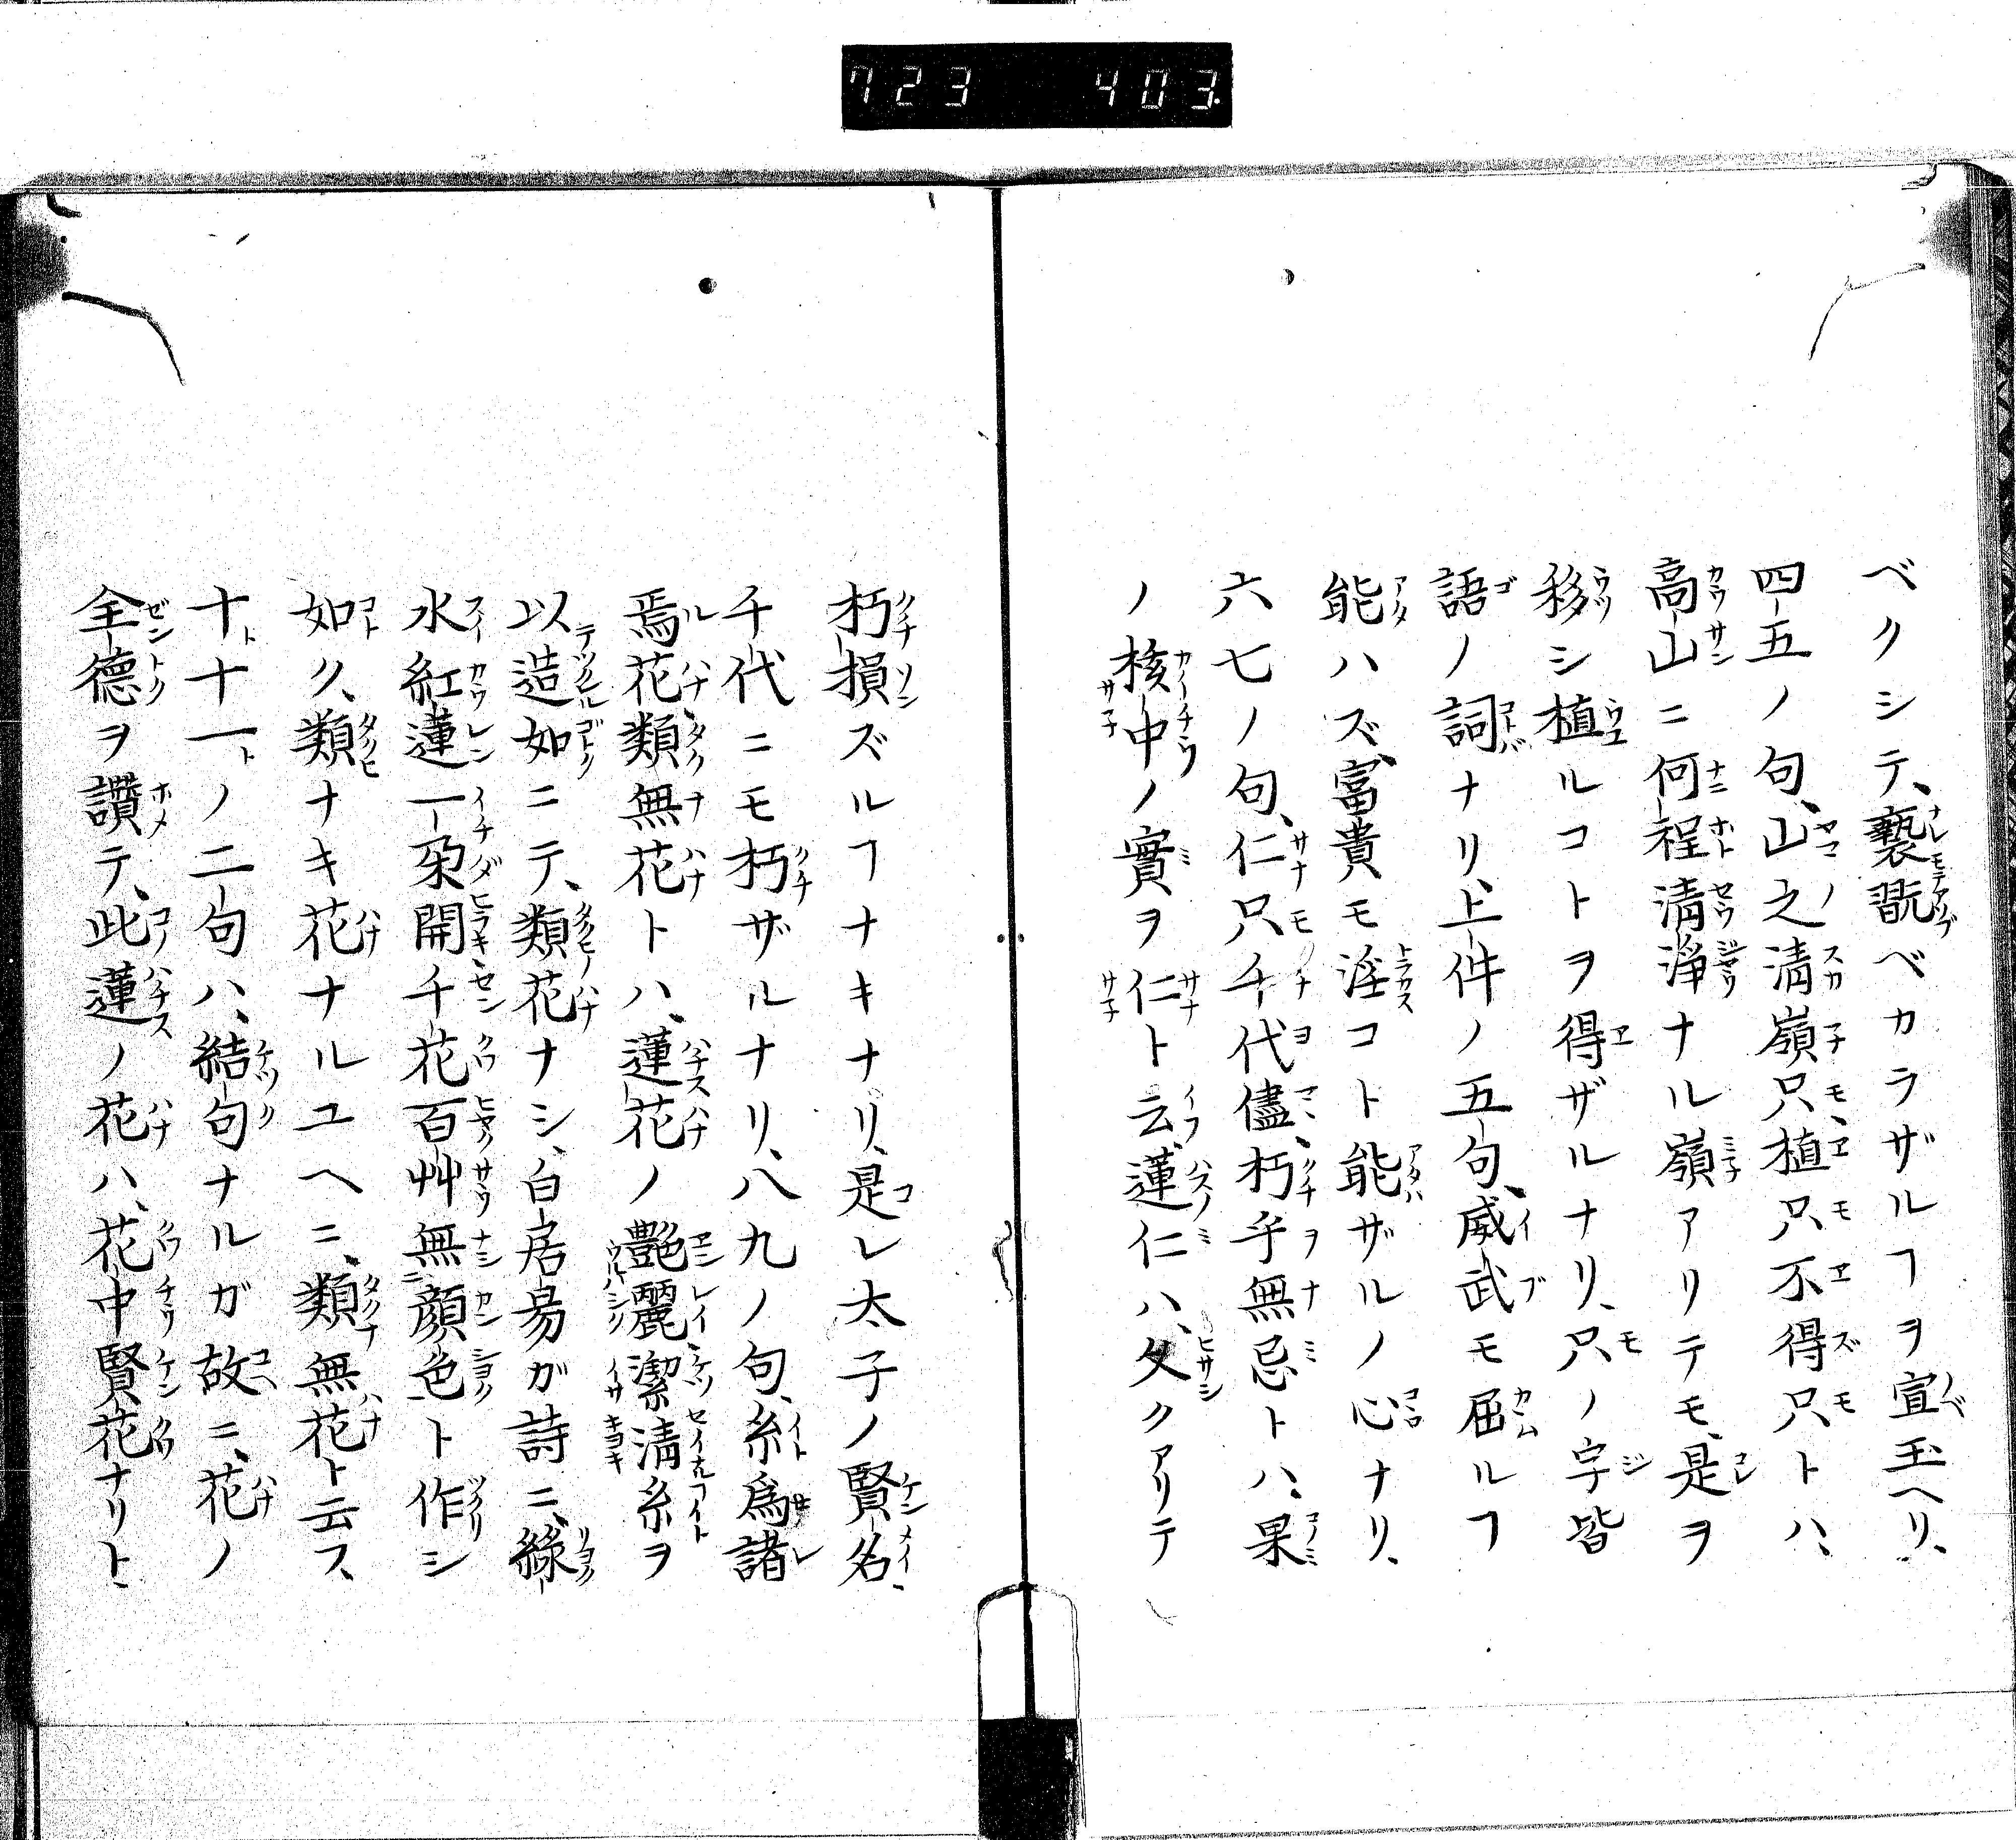 723 403.
ベクシテ、褻翫ベカラザルヿヲ宣玉ヘリ、
四五ノ句、山之清嶺只植只不得只トハ、
高山ニ何程清淨ナル嶺アリテモ、是ヲ
移シ植ルコトヲ得ザルナリ、只ノ字皆
語ノ詞ナリ、上件ノ五句、威武モ屈ルヿ
能ハズ、富貴モ淫コト能ザルノ心ナリ、
六七ノ句、仁只千代儘朽乎無忌トハ、果
ノ核中ノ實ヲ仁ト云、蓮仁ハ、久クアリテ
朽損ズルヿナキナリ、是レ太子ノ賢名
千代ニモ朽ザルナリ、八九ノ句、糸爲諸
焉花類無花トハ、蓮花ノ艷麗潔清糸ヲ
以造如ニテ、類花ナシ、白居易ガ詩ニ、綠
水紅蓮一朶開千花百艸無顏色ト作シ
如ク、類ナキ花ナルユヘニ、類無花ト云ス、
十十一ノ二句ハ、結句ナルガ故ニ、花ノ
全德ヲ讚テ、此蓮ノ花ハ、花中賢花ナリト